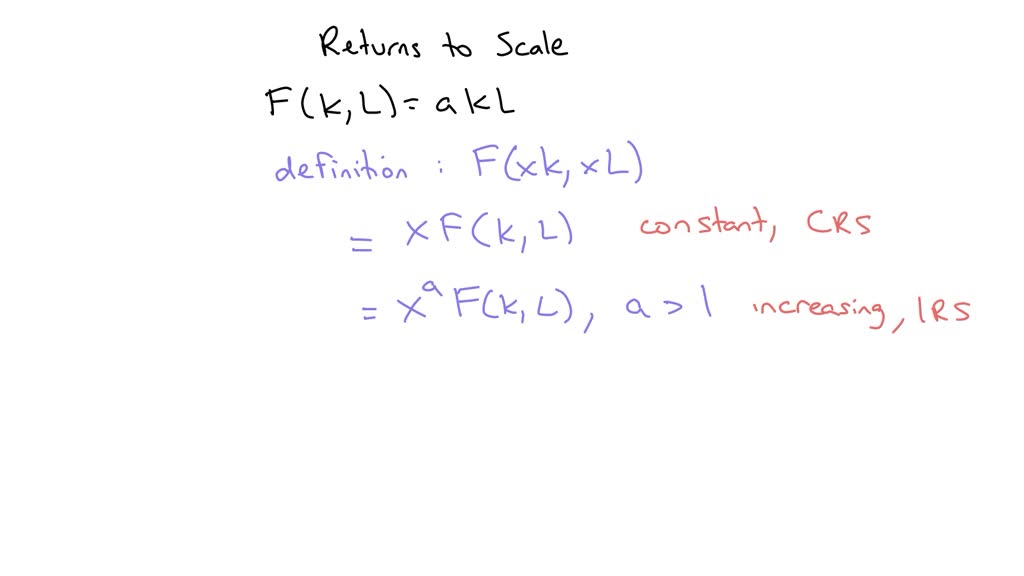 Returns to Scale
F(k,L)= akL
definition : F(xk, xL)
= x F(k,L) constant, CRS
= x^a F(k,L), a > 1 increasing, IRS